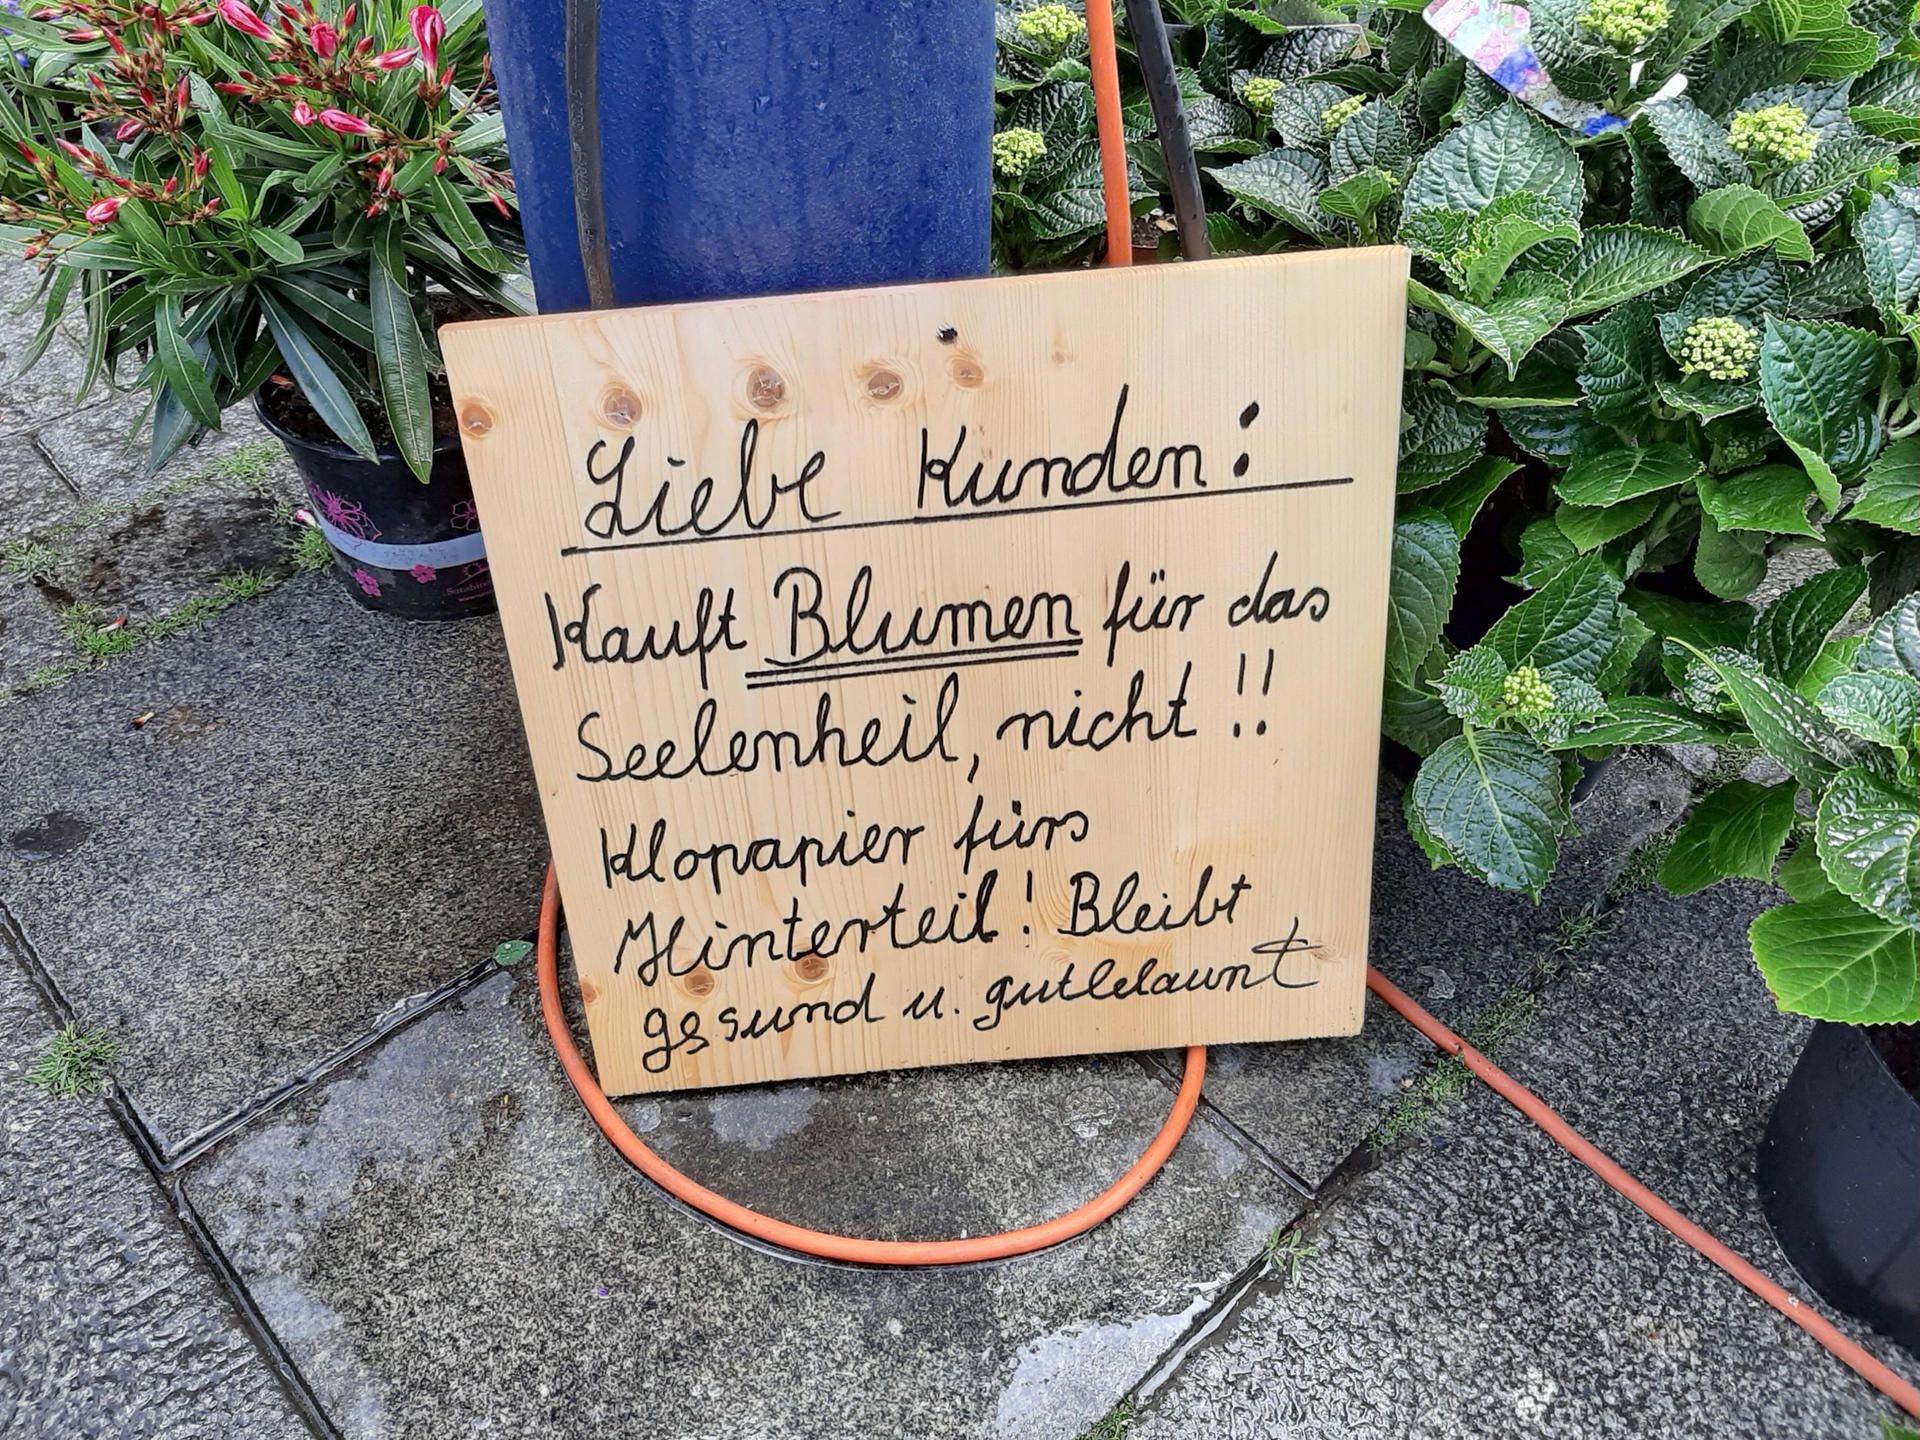 Liebe Kunden:
Kauft Blumen für das
Seelenheil, nicht !!
Klopapier fürs
Hinterteil! Bleibt
gesund u. gutlelaunt